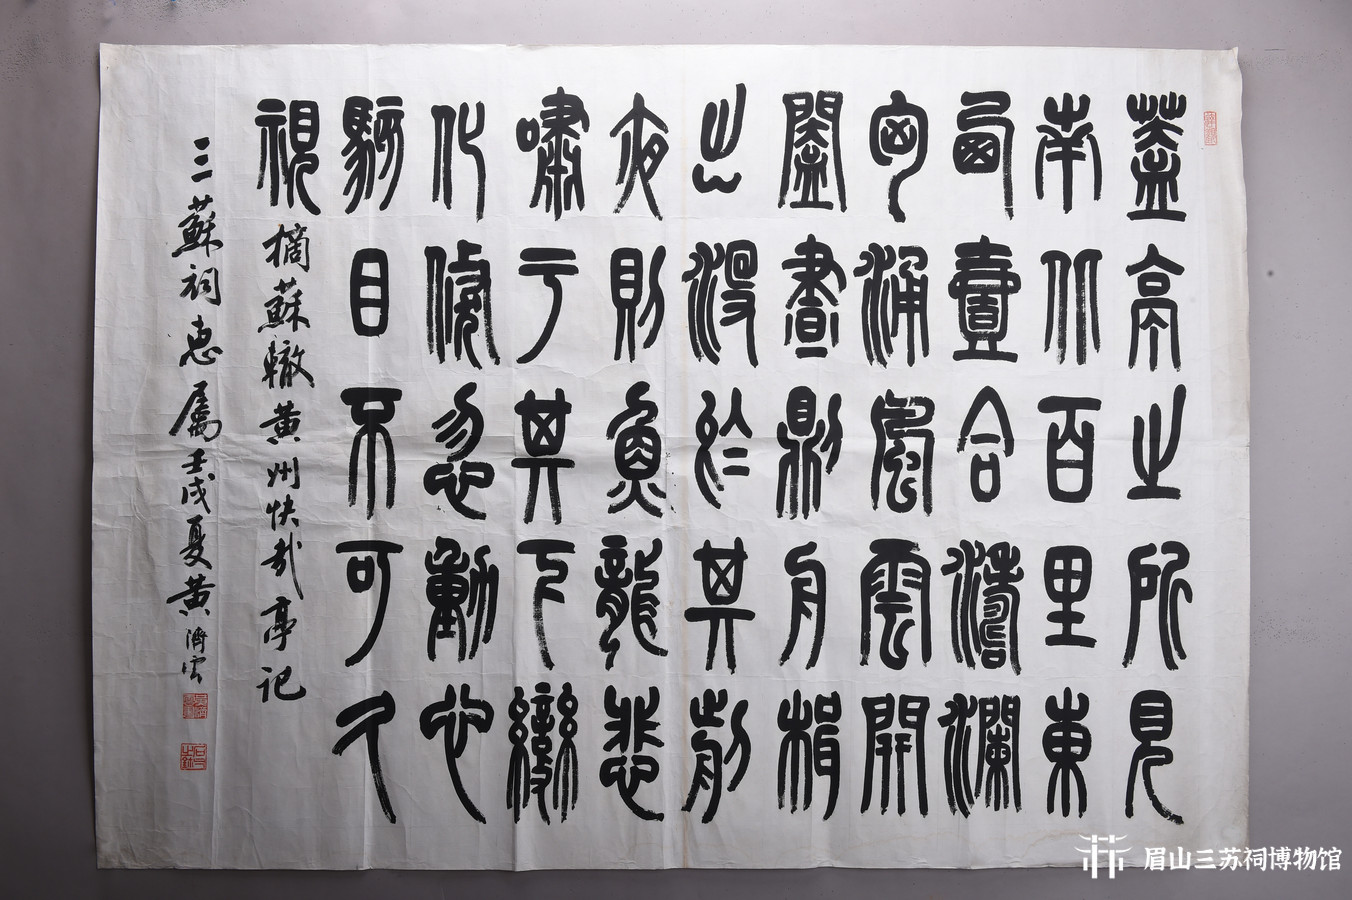 蓋亭之所見
南北百里東
西壹舍濤瀾
匈涌風雲開
闔晝則舟楫
出没於其前
夜則魚龍悲
嘯于其下變
化倏忽動心
駭目不可久
視
摘蘇轍黄州快哉亭記
三蘇祠惠屬壬戌夏黄濟云
眉山三苏祠博物馆